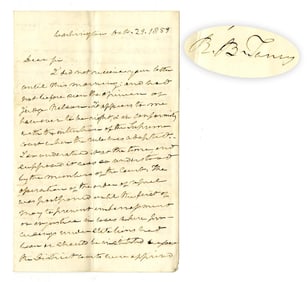 Washington Oct. 29. 1859
Dear Sir
I did not receive your letter
until this morning; and had
not before seen the opinion of
Judge Nelson. It appears to me
however to be right & in conformity
with the intentions of the Supreme
court when the rule was adopted.
I so understood it at the time, and
supposed it was so understood
by the members of the Court. The
operation of the order of repeal
was postponed until the first of
May to prevent embarrassment
or injustice in cases where pro-
ceedings under State laws had
been or should be instituted before
the District courts were apprised
R. B. Taney